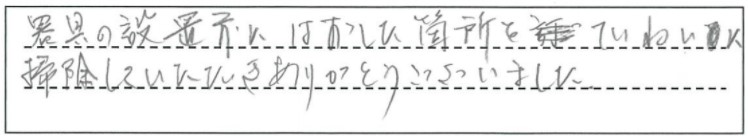 器具の設置前に はずした箇所を ていねいに
掃除していただきありがとうございました